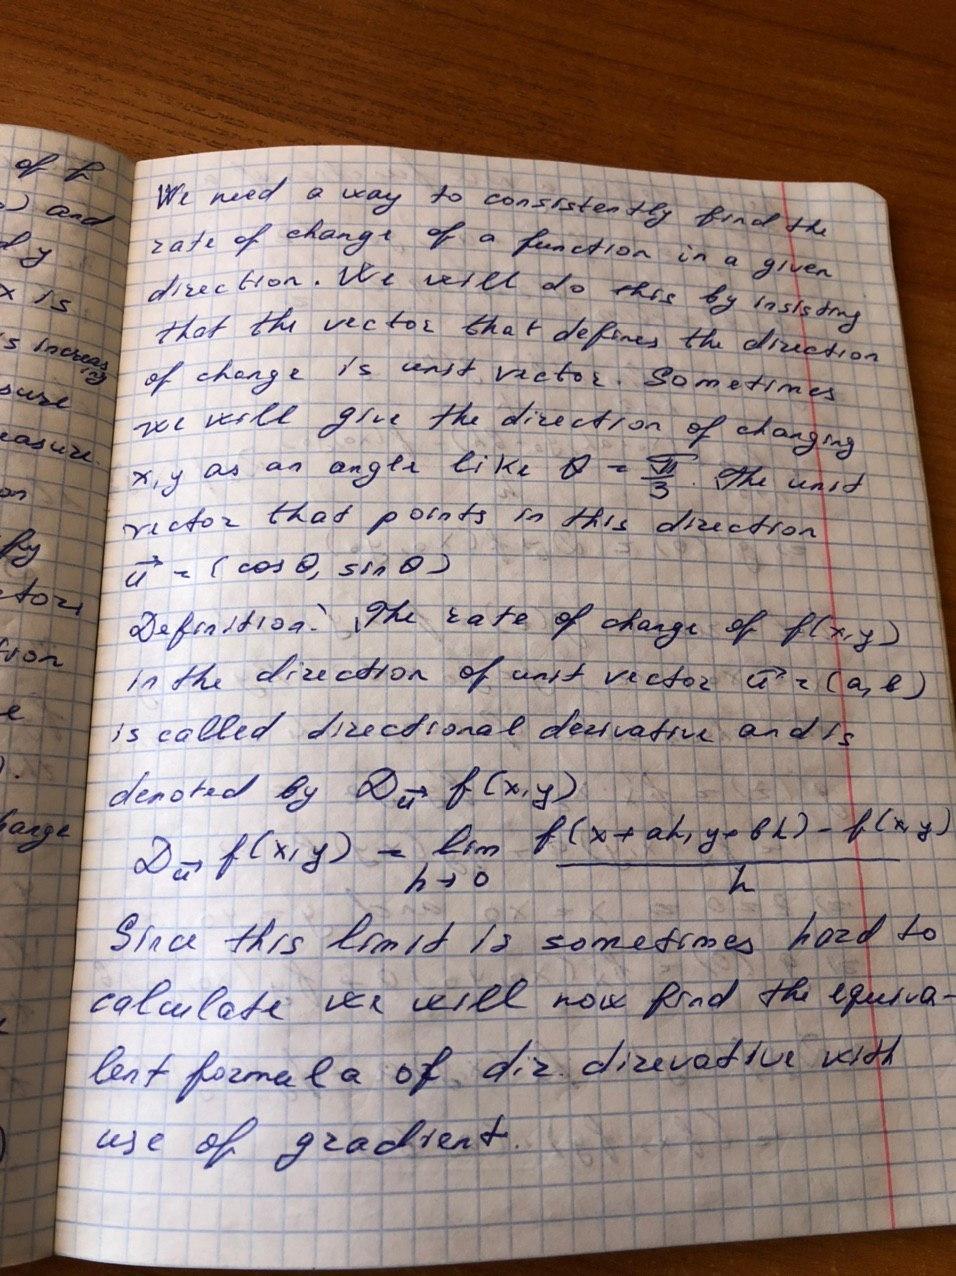 of f
) and
d y
x is
s increas
ing
sure
easure.
on
fy
ctors
tion
e
).
hange
We need a way to consistently find the
rate of change of a function in a given
direction. We will do this by insisting
that the vector that defines the direction
of change is unit vector. Sometimes
we will give the direction of changing
x, y as an angle like θ = π/3. The unit
vector that points in this direction
u⃗ = (cos θ, sin θ)
Definition: The rate of change of f(x,y)
in the direction of unit vector u⃗ = (a, b)
is called directional derivative and is
denoted by D_u⃗ f(x,y)
D_u⃗ f(x,y) = lim_{h→0} (f(x+ah, y+bh) - f(x,y))/h
Since this limit is sometimes hard to
calculate we will now find the equiva-
lent formula of dir. direvative with
use of gradient.